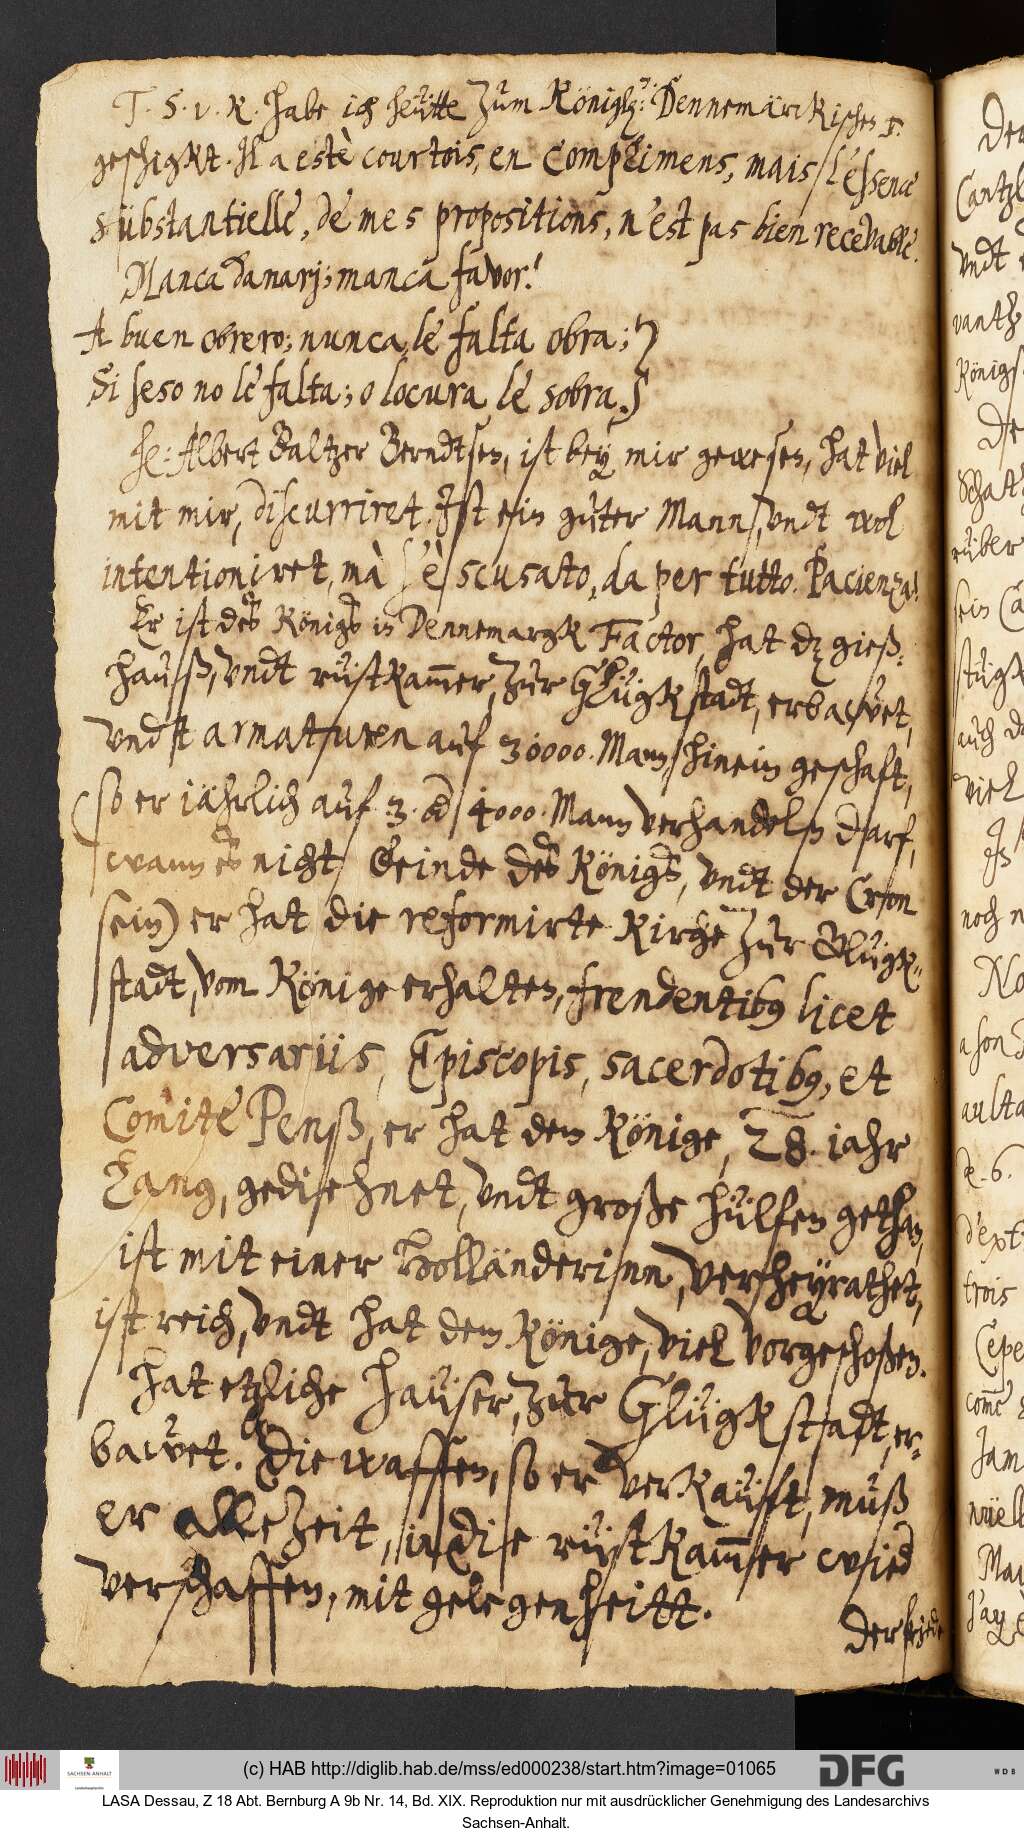 T. S. v. R. habe ich heütte zum Königl: Dennemärckischen r.
geschigkt. Il a estè courtois, en complimens, mais l'essence
sübstantielle, de mes propositions, n'est pas bien recevable.
Manca danarj; manca favor!
A buen obrero; nunca, le falta obra;
Si seso no le falta; o locura le sobra.
He: Albert Baltzer Berndtsen, ist bey mir gewesen, hat viel
mit mir, discurriret. Jst ein guter Mann, vndt wol
intentioniret, mà s'è scusato, da per tutto. Pacienza!
Er ist des Königs in Dennemargk Factor, hat dz gieß-
hauß, vndt rüstkam̅er, zur Glügkstadt, erbawet,
vndt armaturen auf 30000. Mann, hinein geschaft,
(so er iährlich auf 3. od 4000. Mann verhandeln darf,
wann es nicht feinde des Königs, vndt der Cron
sein) er hat die reformirte Kirche zur Glügk-
stadt, vom Könige erhalten, frendentibus licet
adversariis, Episcopis, sacerdotibus, et
Comite Penß, er hat dem Könige, 28. iahr
Lang, gedienet, vndt große hülfen gethan,
ist mit einer Holländerinn, verheyrathet,
ist reich, vndt hat dem Könige, viel vorgeschoßen.
hat etzliche haüser, zur Glügkstadt, er-
bawet. Die waffen, so er verkauft, muß
er allezeit, in die rüstkam̅er wied
verschaffen, mit gelegenheitt.
Der friede
(c) HAB http://diglib.hab.de/mss/ed000238/start.htm?image=01065
SACHSEN-ANHALT
DFG
WDB
LASA Dessau, Z 18 Abt. Bernburg A 9b Nr. 14, Bd. XIX. Reproduktion nur mit ausdrücklicher Genehmigung des Landesarchivs
Sachsen-Anhalt.